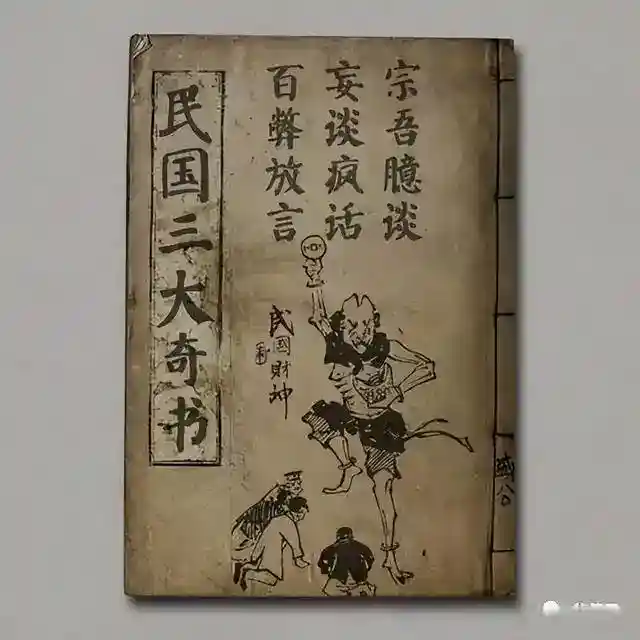 宗吾臆谈
妄谈疯话
百弊放言
民国三大奇书
民國財神